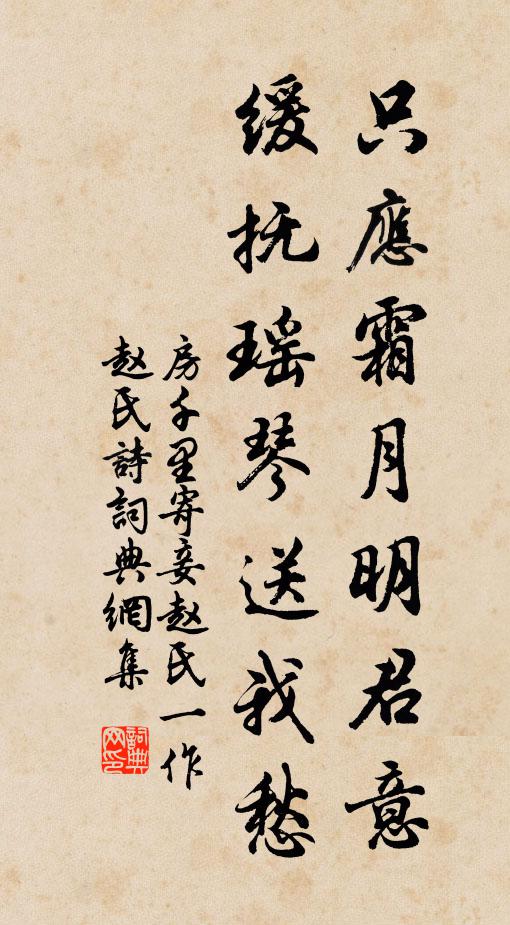 只應霜月明君意
緩抚瑶琴送我愁
房千里寄妾赵氏一作
赵氏詩詞典網集
詞典
网印